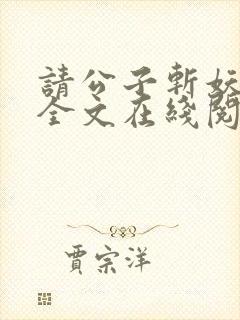 請公子斬妖
全文在綫閱
賈宗洋